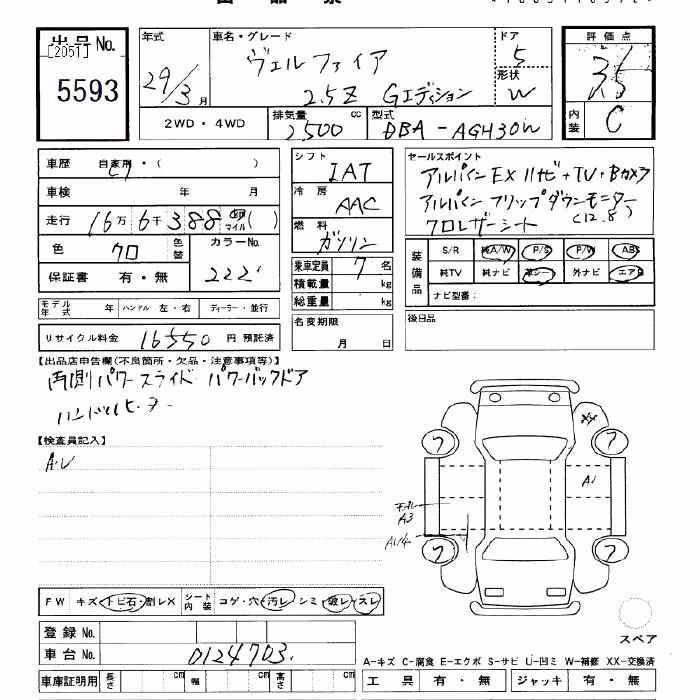 出品No.
[2051]
5593
年式
29/3月
車名・グレード
ヴェルファイア
2.5Z Gエディション
ドア
5
形状
W
評価点
3.5
内装
C
2WD・4WD
排気量
2500 cc
型式
DBA-AGH30W
車歴 自家用・( )
車検 年 月
走行 16万6千388 km マイル ( )
色 クロ 色替
カラーNo.
222
保証書 有・無
モデル年式 年 ハンドル 左・右 ディーラー・並行
リサイクル料金 16550 円 預託済
シフト
IAT
冷房
AAC
燃料
ガソリン
乗車定員 7 名
積載量 kg
総重量 kg
名変期限
月 日
セールスポイント
アルパインEX11ナビ+TV・Bカメラ
アルパインフリップダウンモニター
クロレザーシート (12.8)
装備品
S/R 純A/W P/S P/W ABS
純TV 純ナビ 革シート 外ナビ エアB
ナビ型番:
後日品
【出品店申告欄(不良箇所・欠品・注意事項等)】
両側パワースライド パワーバックドア
ハンドルヒーター
【検査員記入】
A・U
XX
7
7
7
7
A1
モール
A3
AU4
スペア
FW キズ・トビ石・割レX シート内装 コゲ・穴・汚レ・シミ・破レ・スレ
登録No.
車台No. 0124703
車庫証明用 長さ cm 幅 cm 高さ cm
A-キズ C-腐食 E-エクボ S-サビ U-凹ミ W-補修 XX-交換済
工具 有・無 ジャッキ 有・無